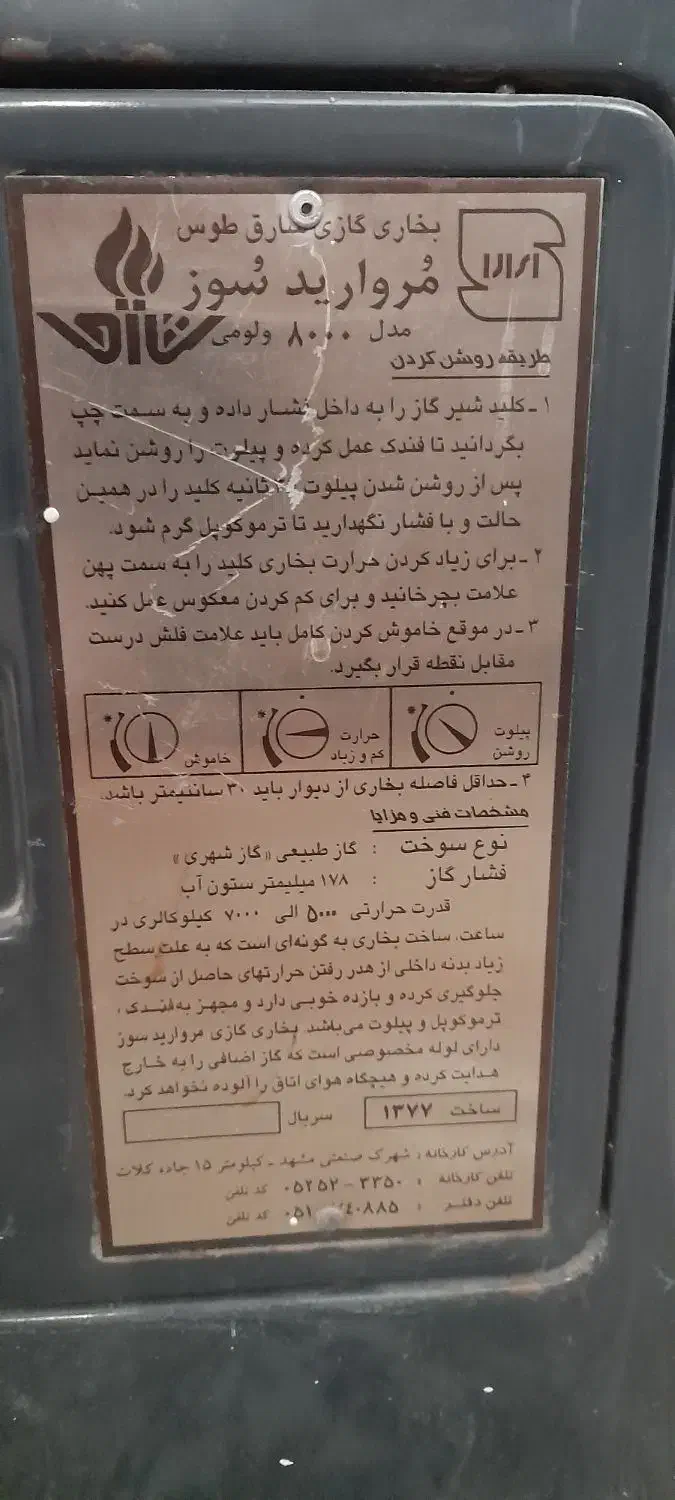 بخاری گازی شارق طوس
مُروارید سُوز
مدل ۸۰۰۰ ولومی
طریقه روشن کردن
۱ـ کلید شیر گاز را به داخل فشار داده و به سمت چپ
بگردانید تا فندک عمل کرده و پیلوت را روشن نماید
پس از روشن شدن پیلوت ثانیه کلید را در همین
حالت و با فشار نگهدارید تا ترموکوپل گرم شود.
۲ـ برای زیاد کردن حرارت بخاری کلید را به سمت پهن
علامت بچرخانید و برای کم کردن معکوس عمل کنید.
۳ـ در موقع خاموش کردن کامل باید علامت فلش درست
مقابل نقطه قرار بگیرد.
پیلوت
روشن
حرارت
کم و زیاد
خاموش
۴ـ حداقل فاصله بخاری از دیوار باید ۳۰ سانتیمتر باشد.
مشخصات فنی و مزایا
نوع سوخت : گاز طبیعی «گاز شهری»
فشار گاز : ۱۷۸ میلیمتر ستون آب
قدرت حرارتی ۵۰۰۰ الی ۷۰۰۰ کیلوکالری در
ساعت، ساخت بخاری به گونه‌ای است که به علت سطح
زیاد بدنه داخلی از هدر رفتن حرارتهای حاصل از سوخت
جلوگیری کرده و بازده خوبی دارد و مجهز به فندک،
ترموکوپل و پیلوت می‌باشد. بخاری گازی مروارید سوز
دارای لوله مخصوصی است که گاز اضافی را به خارج
هدایت کرده و هیچگاه هوای اتاق را آلوده نخواهد کرد.
ساخت ۱۳۷۷ سریال
آدرس کارخانه : شهرک صنعتی مشهد ـ کیلومتر ۱۵ جاده کلات
تلفن کارخانه : ۳۳۵۰ - ۰۵۲۵۲ کد تلفن
تلفن دفتر : ۰۵۱ کد تلفن